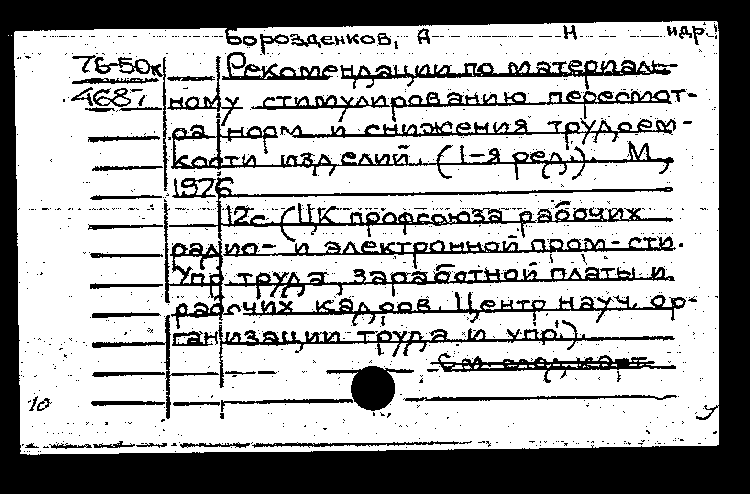 Борозденков, А Н идр.
76-50к Рекомендации по материаль-
4687 ному стимулированию пересмот-
ра норм и снижения трудоем-
кости изделий. (1-я ред.). М.,
1976
12с. (ЦК профсоюза рабочих
радио- и электронной пром-сти.
Упр. труда, заработной платы и
рабочих кадров. Центр науч. ор-
ганизации труда и упр.).
См. след. карт.
10